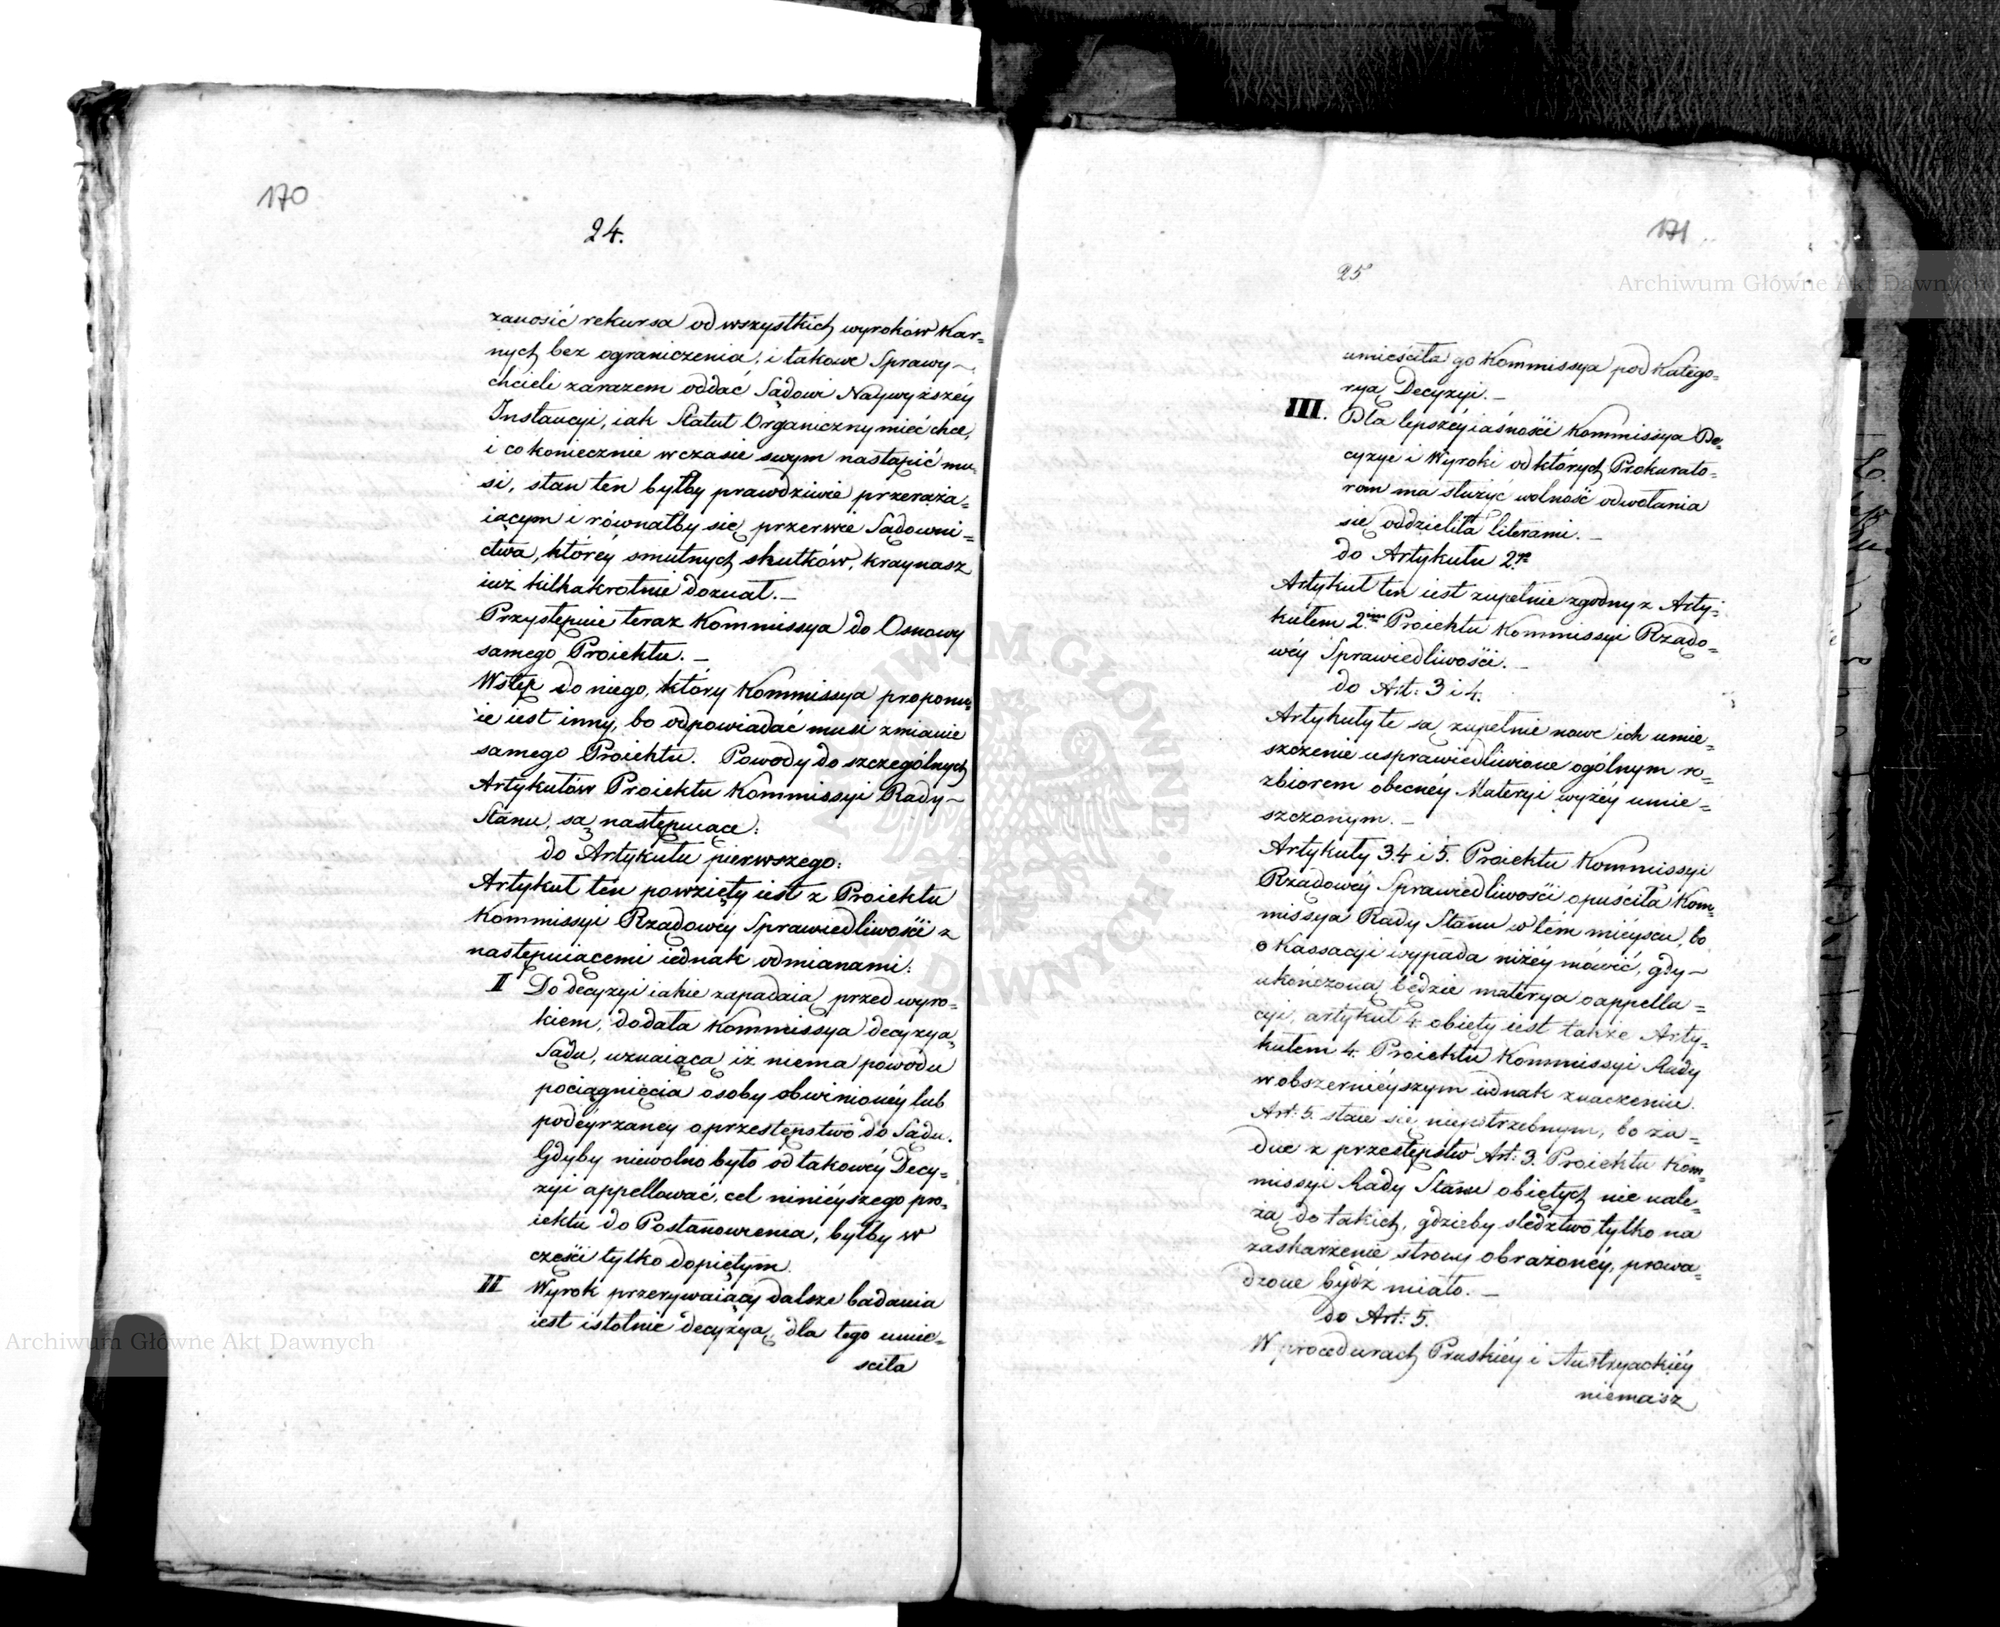 170
24.
zanosić rekursa od wszystkich wyroków Kar=
nych bez ograniczenia, i takowe Sprawy
chcieli zarazem oddać Sądowi Naywyższéy
Instancyi, iak Statut Organiczny mieć chce,
i co koniecznie w czasie swym nastąpić mu=
si, stan ten byłby prawdziwie przeraża=
iącym i równałby się przerwie Sądowni=
ctwa, któréy smutnych skutków, kray nasz
iuż kilkakrotnie doznał. —
Przystępuie teraz Kommissya do Osnowy
samego Proiektu. —
Wstęp do niego, który Kommissya proponu=
ie iest inny, bo odpowiadać musi zmianie
samego Proiektu. Powody do szczególnych
Artykułów Proiektu Kommissyi Rady
Stanu, są następuiące:
do Artykułu pierwszego:
Artykuł ten powzięty iest z Proiektu
Kommissyi Rządowéy Sprawiedliwości z
następuiącemi iednak odmianami:
I Do decyzyi iakie zapadaią przed wyro=
kiem, dodała Kommissya decyzyą
Sądu, uznaiącą iż niema powodu
pociągnięcia osoby obwinionéy lub
podeyrzanéy o przestępstwo do Sądu.
Gdyby niewolno było od takowéy Decy=
zyi appellować, cel ninieyszego pro=
iektu do Postanowienia, byłby w
części tylko dopiętym.
II Wyrok przerywaiący dalsze badania
iest istotnie decyzyą, dla tego umie=
sciła
171
25
umieściła go Kommissya pod Katego=
ryą Decyzyi. —
III. Dla lepszéy iaśności Kommissya De=
cyzye i Wyroki od których Prokurato=
rom ma służyć wolność odwołania
się oddzieliła literami. —
do Artykułu 2go
Artykuł ten iest zupełnie zgodny z Arty=
kułem 2im Proiektu Kommissyi Rządo=
wéy Sprawiedliwości. —
do Art: 3 i 4.
Artykuły te są zupełnie nowe ich umie=
szczenie usprawiedliwione ogólnym ro=
zbiorem obecnéy Materyi wyżéy umie=
szczonym. —
Artykuły 3.4 i 5. Proiektu Kommissyi
Rządowéy Sprawiedliwości opuściła Kom=
missya Rady Stanu w tém mieyscu, bo
o Kassacyi wypada niżéy mowić, gdy
ukończoną będzie materya o appella=
cyi, artykuł 4. obięty iest także Arty=
kułem 4. Proiektu Kommissyi Rady
w obszernieyszym iednak znaczeniu.
Art: 5. staie się niepotrzebnym, bo ża=
dne z przestępstw Art: 3. Proiektu Kom=
missyi Rady Stanu obiętych nie nale=
żą do takich, gdzieby śledztwo tylko na
zaskarżenie strony obrażonéy, prowa=
dzone bydź miało. —
do Art: 5.
W procedurach Pruskiéy i Austryackiéy
niemasz
Archiwum Główne Akt Dawnych
Archiwum Główne Akt Dawnych
ARCHIWUM GŁÓWNE AKT DAWNYCH